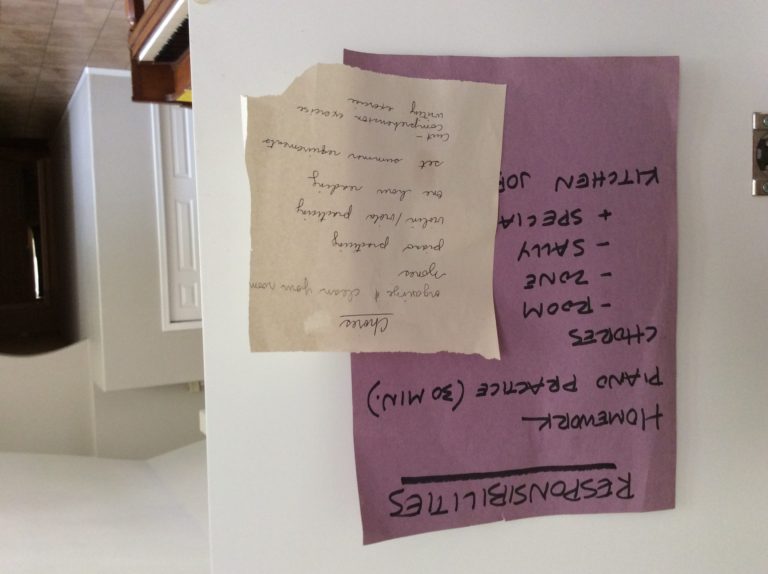 RESPONSIBILITIES
HOMEWORK
PIANO PRACTICE (30 MIN.)
CHORES
- ROOM
- ZONE
- SALLY
+ SPECIA
KITCHEN JOB
Chores
organize & clean your room
zones
piano practicing
violin/viola practicing
one hour reading
set summer requirements
Comprehension exercise
writing exercise